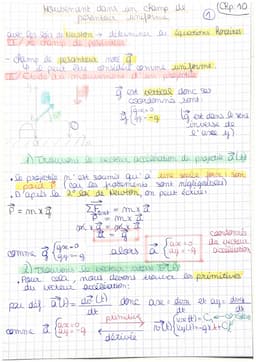 Mouvement dans un champ de
pesanteur uniforme
① Chp. 10
avec les lois de Newton → déterminer les équations horaires
I / le champ de pesanteur
- champ de pesanteur noté g⃗
- il peut être considéré comme uniforme.
II / Etude du mouvement d'un projectile
g⃗ est vertical donc ses
coordonnées sont :
g⃗ { gx = 0
gy = -g
(g⃗ est dans le sens
inverse de
l'axe y)
1) Trouvons le vecteur accélération du projectile a⃗(t)
• le projectile n'est soumis qu'à une seule force : son
poids P⃗ (car les frottements sont négligeables)
• D'après la 2e loi de Newton, on peut écrire :
P⃗ = m x g⃗
ΣF⃗ext = m x a⃗
P⃗ = m x a⃗
m x g⃗ = m x a⃗
g⃗ = a⃗
comme g⃗ { gx = 0
gy = -g
alors a⃗ { ax = 0
ay = -g
coordonnées
du vecteur
accélération
2) Trouvons le vecteur vitesse v⃗(t)
• Pour cela, nous devons trouver les primitives
du vecteur accélération :
par déf. a⃗(t) = dv⃗(t)/dt donc ax = dvx/dt et ay = dvy/dt
comme a⃗ { ax = 0
ay = -g
primitive
dérivée
v⃗(t) { vx(t) = C1
vy(t) = -g x t + C2